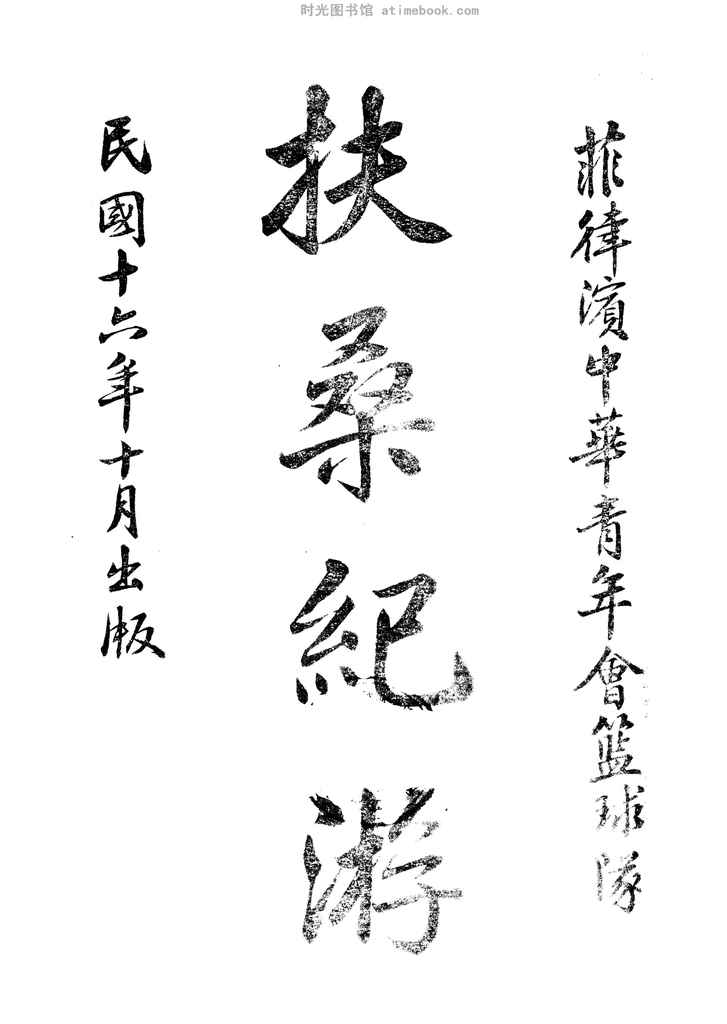 时光图书馆 atimebook.com
菲律濱中華青年會籃球隊
扶桑紀游
民國十六年十月出版